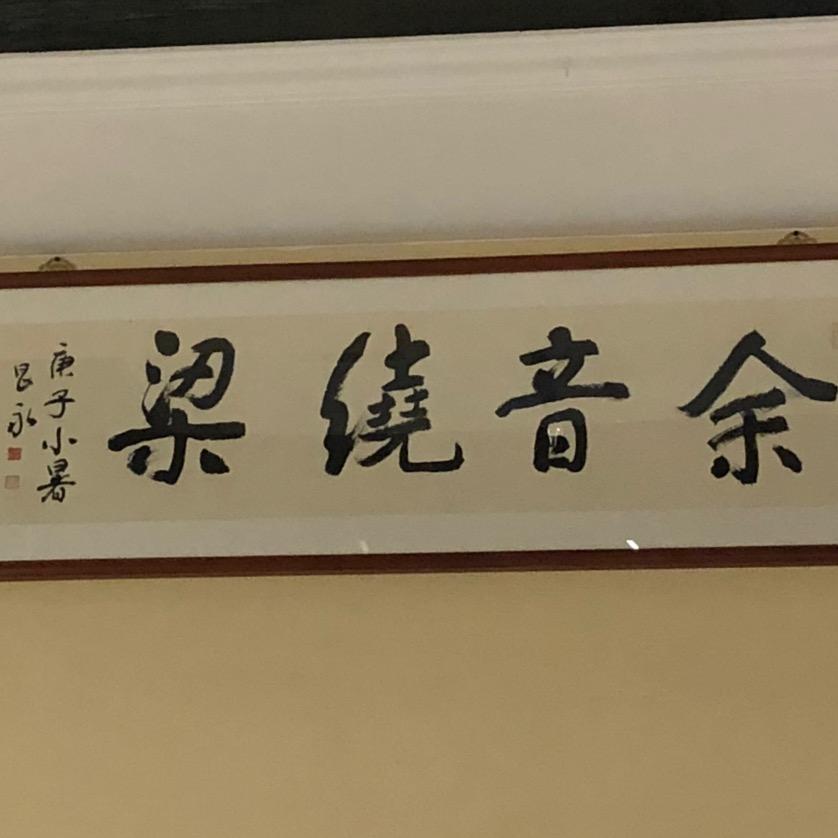 余音繞梁
庚子小暑
昌永